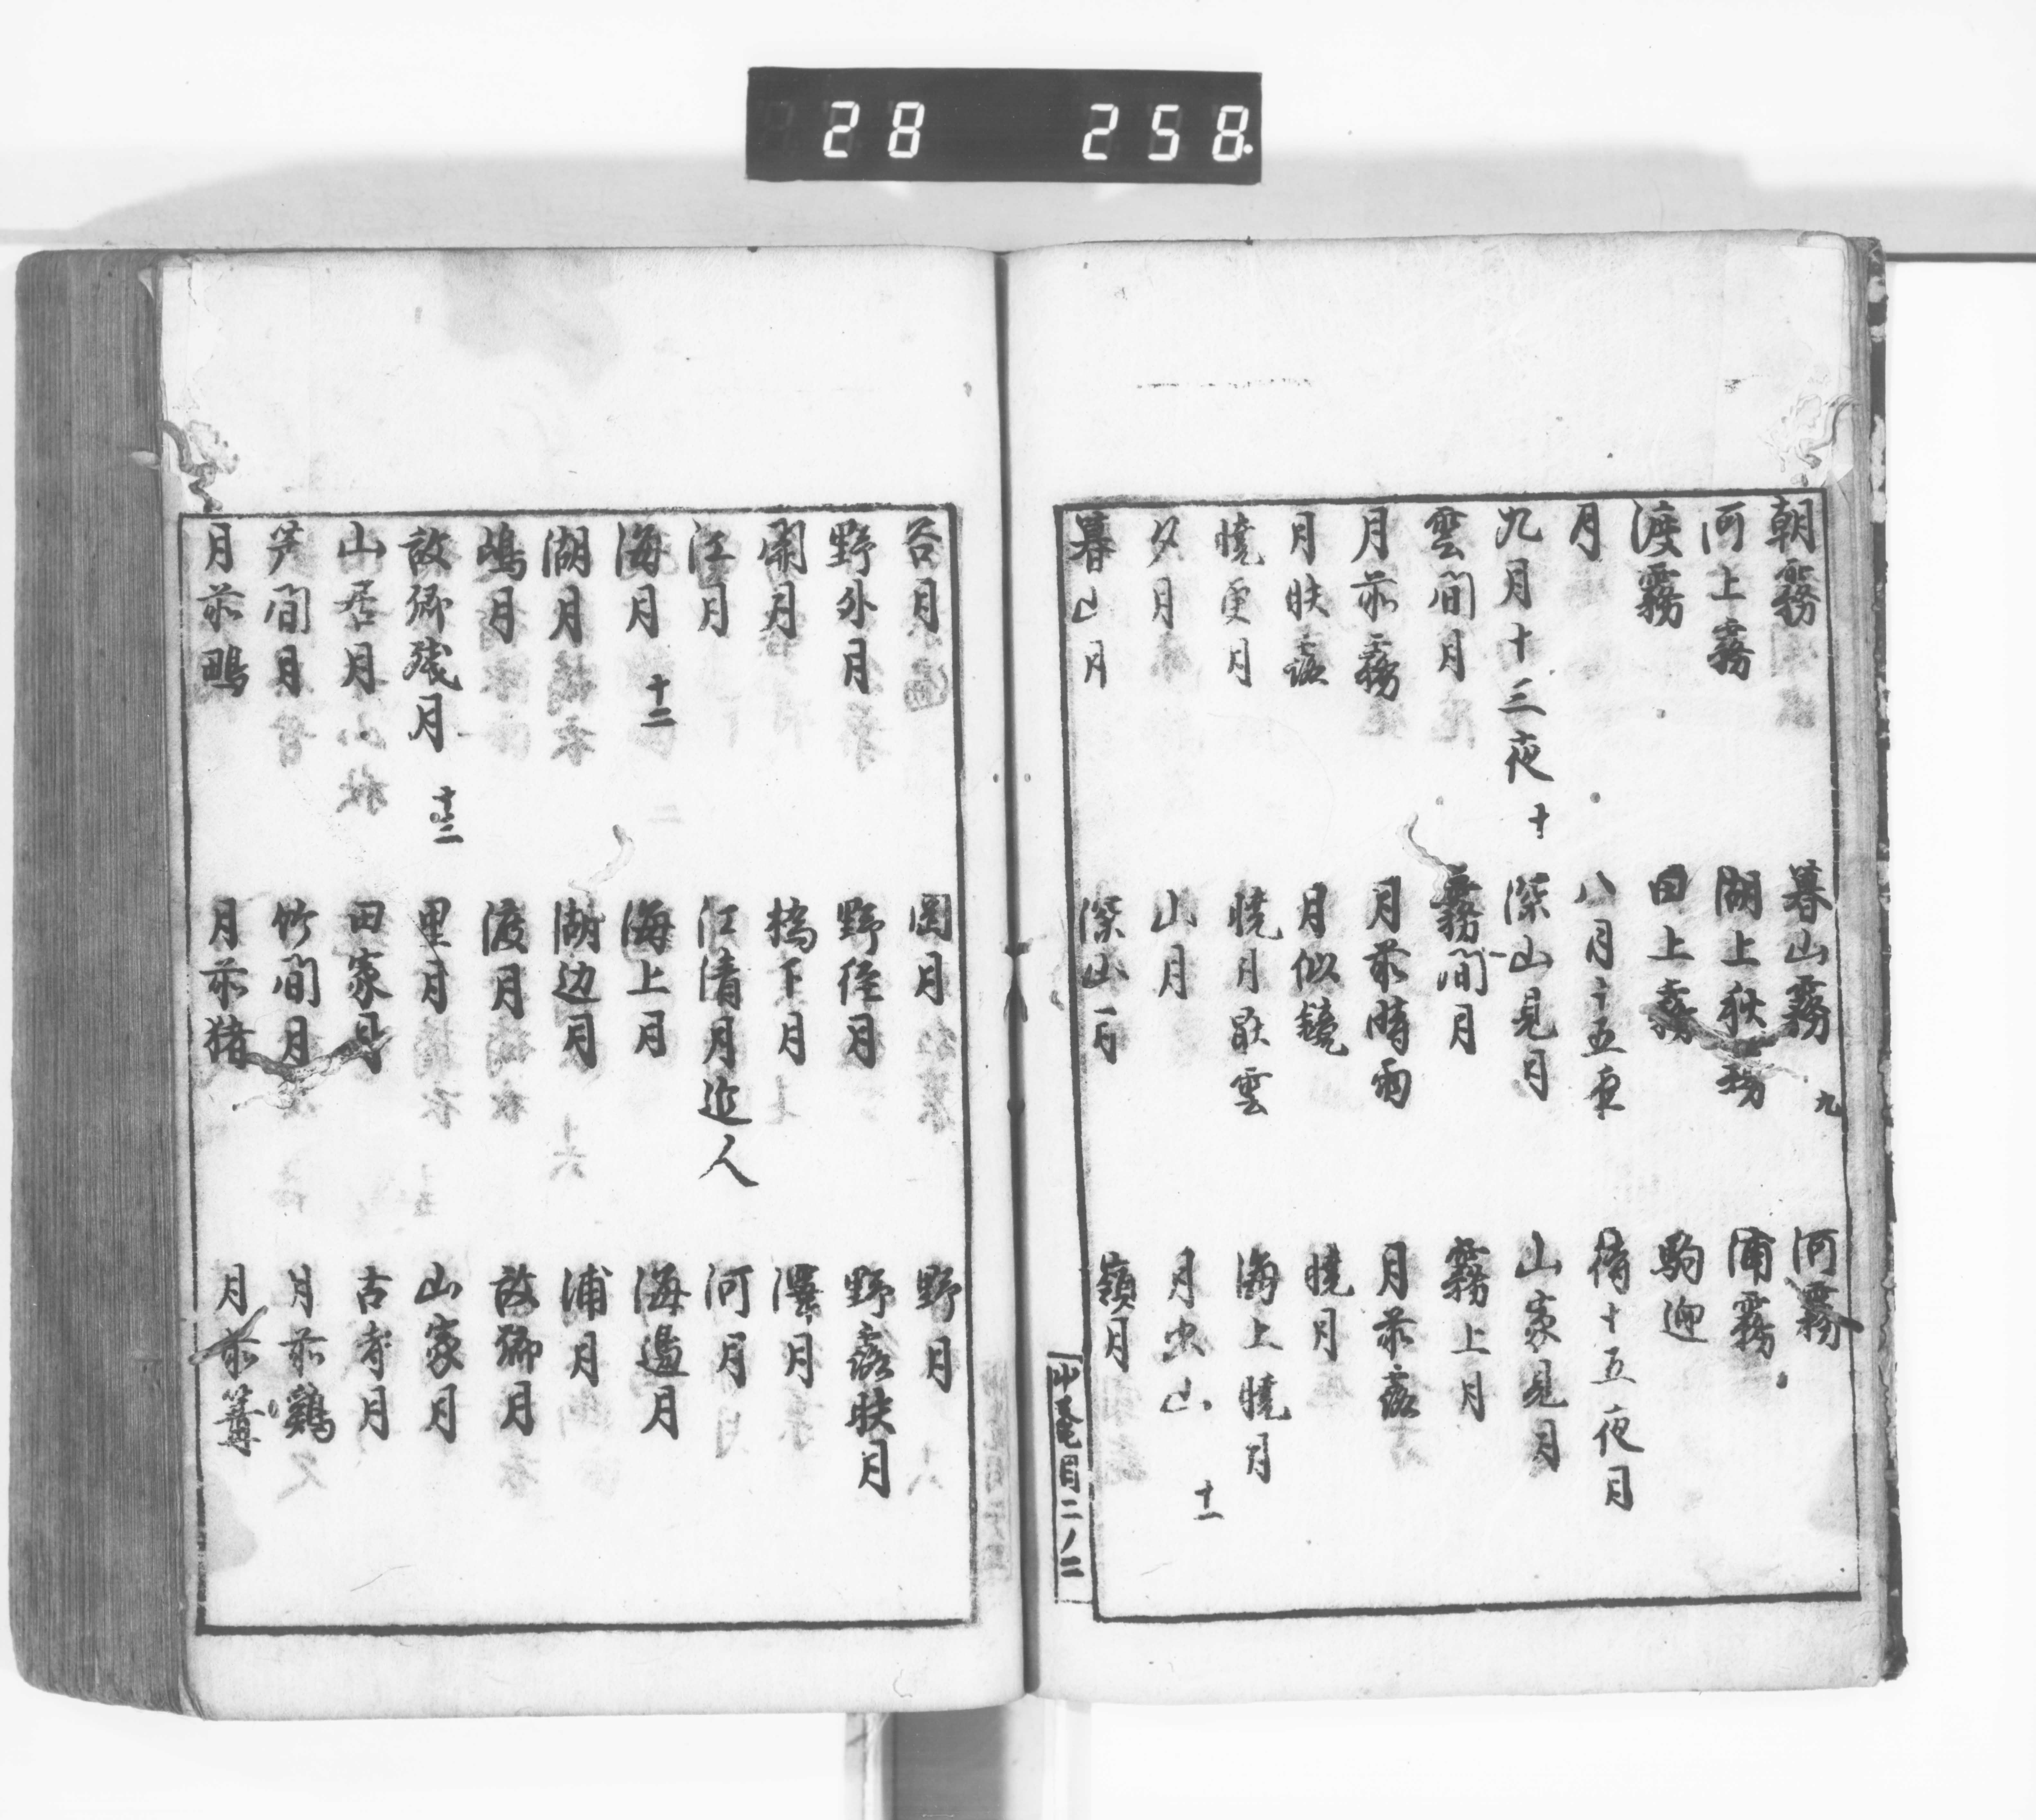 28 258.
朝霧 暮山霧 九 河霧
河上霧 湖上秋霧 浦霧
渡霧 田上霧 駒迎
月 八月十五夜 待十五夜月
九月十三夜 十 深山見月 山家見月
雲間月 霧間月 霧上月
月前霧 月前時雨 月前露
月照露 月似鏡 暁月
暁更月 暁月厭雲 海上暁月
夕月 山月 月出山 十一
暮山月 深山月 嶺月
山菴目二ノ二
谷月 岡月 野月
野外月 野径月 野露映月
関月 橋下月 澤月
江月 江清月近人 河月
海月 十二 海上月 海邉月
湖月 湖辺月 浦月
嶋月 渡月 故郷月
故郷残月 十ノ十二 里月 山家月
山居月 田家月 古寺月
芦間月 竹間月 月前鶏
月前鴫 月前猪 月前篝